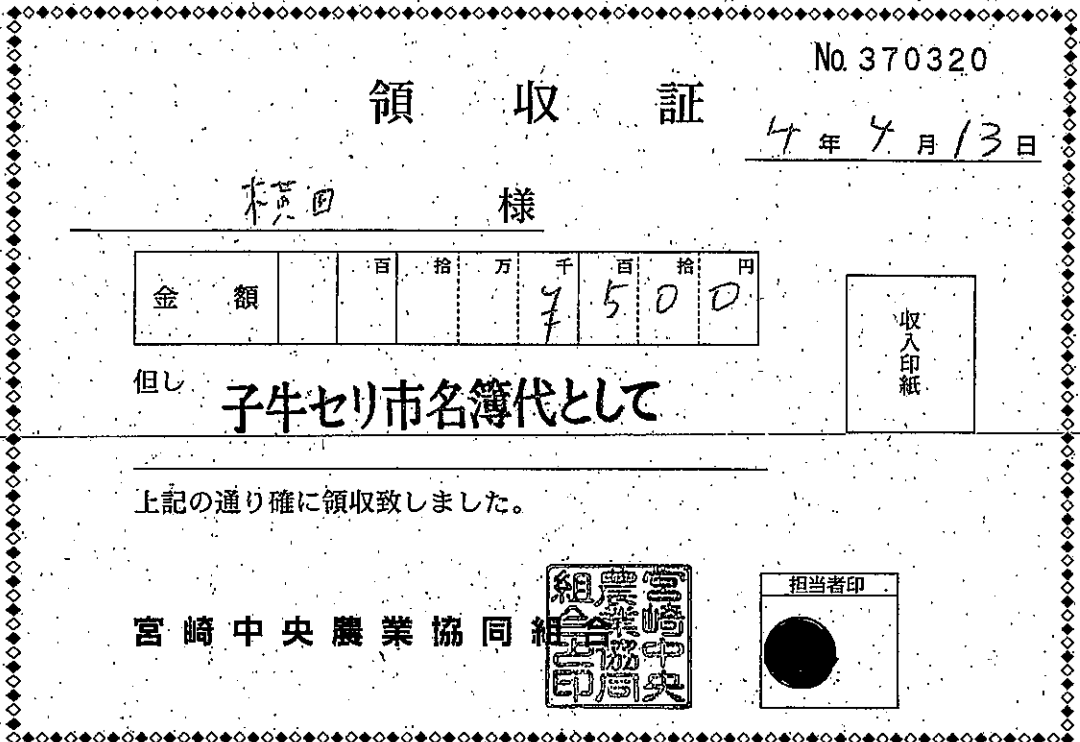 No. 370320
領収証
4年4月13日
横田 様
金額 百拾万千百拾円
¥500
但し 子牛セリ市名簿代として
収入印紙
上記の通り確に領収致しました。
宮崎中央農業協同組合
宮崎中央農業協同組合之印
担当者印